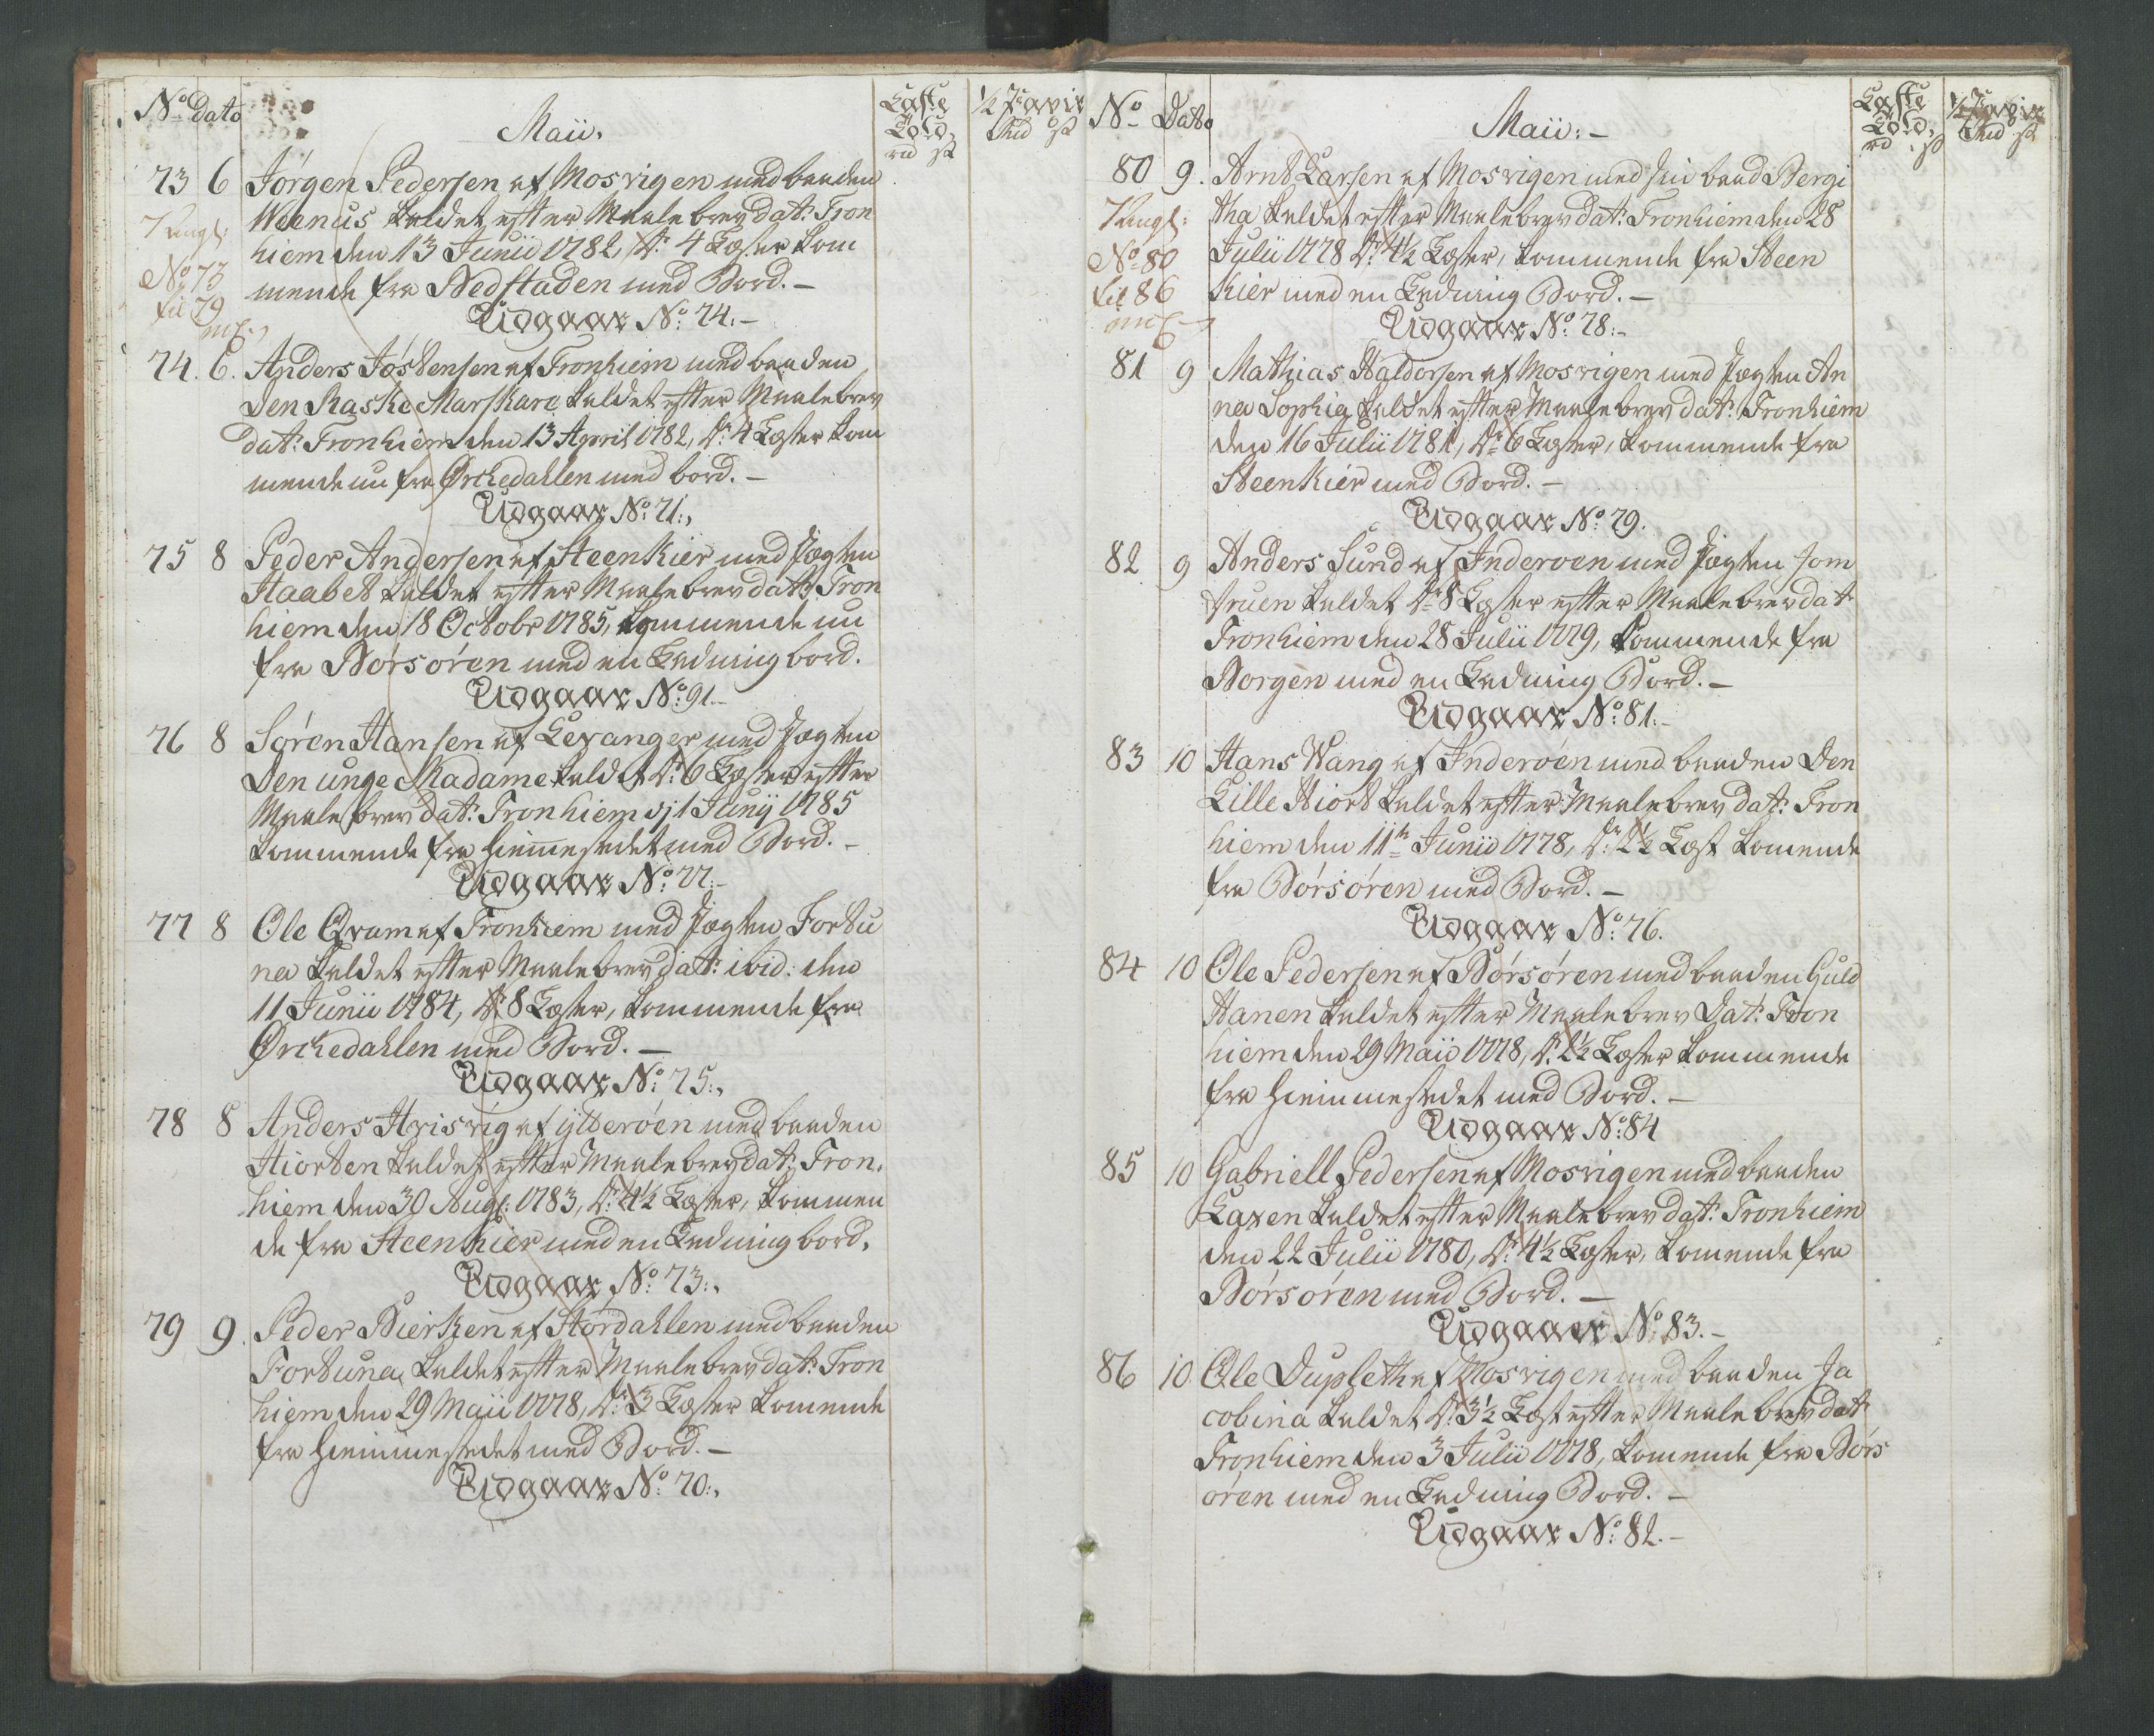 No dato
Maii.
Læste Told,
rd ß
½ P
rd ß
73 6 Jørgen Pedersen af Mosvigen med baaden
Weenus kaldet efter Maalebrev dat: Tron
hiem den 13 Junii 1782, Dr: 4 Læster kom
mende fra Nedstaden med Bord. –
Udgaar No: 74. –
No 73
til 79
74. 6. Anders Jøstensen af Tronhiem med baaden
Den Raske Marskare kaldet efter Maalebrev
dat: Tronhiem den 13 April 1782, Dr: 4 Læster kom
mende nu fra Ørckedahlen med bord. –
Udgaar No: 71.,
75 8 Peder Andersen af Steenkier med Jægten
Haabet kaldet efter Maalebrev dat: Tron
hiem den 18 Octobr 1785, kommende nu
fra Børsøren med en Ladning bord.
Udgaar No: 91. –
76 8 Søren Hansen af Levanger med Jægten
Den unge Madame kaldet Dr: 6 Læster efter
Maalebrev dat: Tronhiem 1 Junij 1785
kommende fra Hiemmestedet med Bord. –
Udgaar No: 77. –
77 8 Ole Qvam af Tronhiem med Jægten Fortu
na kaldet efter Maalebrev dat: ibid: den
11 Junii 1784, Dr 8 Læster, kommende fra
Ørckedahlen med Bord. –
Udgaar No: 75.,
78 8 Anders Hrisvig af ytterøen med baaden
Hiorten kaldet efter Maalebrev dat: Tron,
hiem den 30 Aug: 1783, Dr: 4½ Læster, kommen
de fra Steenkier med en Ladning bord,
Udgaar No: 73.,
79 9. Peder Bierken af Størdahlen med baaden
Fortuna, kaldet efter Maalebrev dat: Tron
hiem den 29 Maii 1778, Dr: 3 Læster komende
fra Hiemmestedet med Bord. –
Udgaar No: 70.,
No Dato
Maii: –
Læste Told,
rd ß
½ P
rd ß
80 9. Arnt Larsen af Mosvigen med sin baad Bergi
tha kaldet efter Maalebrev dat: Tronhiem den 28
Julii 1778 Dr: 4½ Læster, kommende fra Steen
kier med en Ladning Bord. –
Udgaar No: 78. –
No 80
til 86
81 9 Mathias Haldorsen af Mosvigen med Jægten An
na Sophia kaldet efter Maalebrev dat: Tronhiem
den 16 Julii 1781, Dr: 6 Læster, kommende fra
Steenkier med Bord. –
Udgaar No: 79.
82 9 Anders Sund af Inderoen med Jægten Jom
fruen kaldet Dr: 8 Læster efter Maalebrev dat:
Tronhiem den 28 Julii 1779, kommende fra
Borgen med en Ladning Bord. –
Udgaar No: 81. –
83 10 Hans Wang af Inderøen med baaden Den
Lille Hiort kaldet efter Maalebrev dat: Tron
hiem den 11te Junii 1778, Dr: 2½ Læst komende
fra Børsøren med Bord. –
Udgaar No: 76.
84 10 Ole Pedersen af Børsøren med baaden Guld
Hanen kaldet efter Maalebrev Dat: Tron
hiem den 29 Maii 1778, Dr: 2½ Læster kommende
fra Hiemmestedet med Bord. –
Udgaar No: 84
85 10 Gabriell Pedersen af Mosvigen med baaden
Laxen kaldet efter Maalebrev dat: Tronhiem
den 22 Julii 1780, Dr: 4½ Læster, komende fra
Børsøren med Bord. –
Udgaar No: 83. –
86 10 Ole Dupleth af Mosvigen med baaden Ja
cobina kaldet Dr: 3½ Læst efter Maalebrev dat:
Tronhiem den 3 Julii 1778, komende fra Børs
øren med en Ladning Bord. –
Udgaar No: 82. –